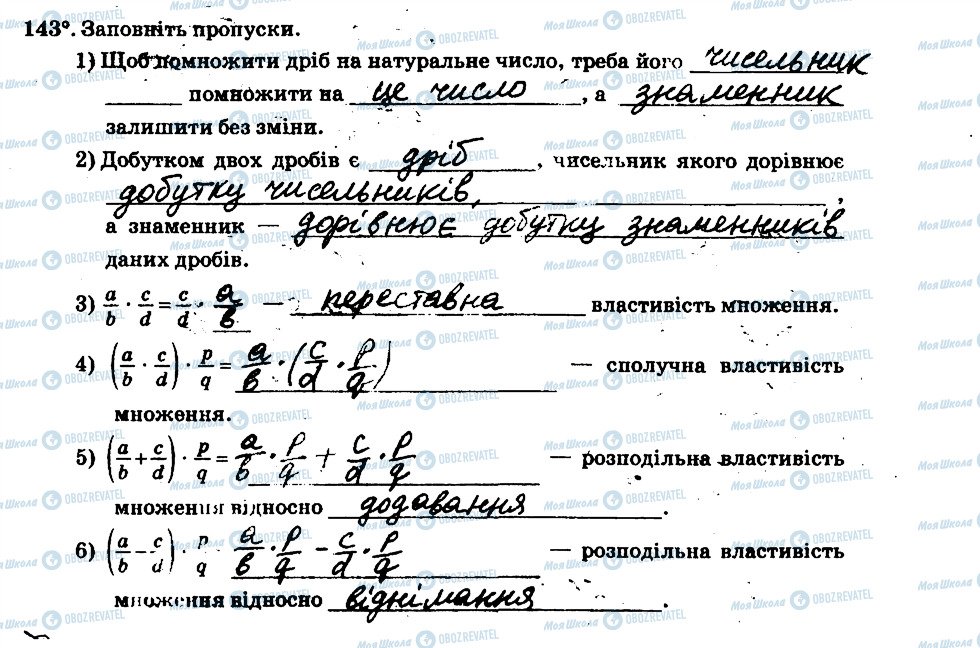 143°. Заповніть пропуски.
1) Щоб помножити дріб на натуральне число, треба його чисельник
помножити на це число, а знаменник
залишити без зміни.
2) Добутком двох дробів є дріб, чисельник якого дорівнює
добутку чисельників,,
а знаменник — дорівнює добутку знаменників
даних дробів.
3) a/b · c/d = c/d · a/b — переставна властивість множення.
4) (a/b · c/d) · p/q = a/b · (c/d · p/q) — сполучна властивість
множення.
5) (a/b + c/d) · p/q = a/b · p/q + c/d · p/q — розподільна властивість
множення відносно додавання.
6) (a/b − c/d) · p/q a/b · p/q − c/d · p/q — розподільна властивість
множення відносно віднімання.